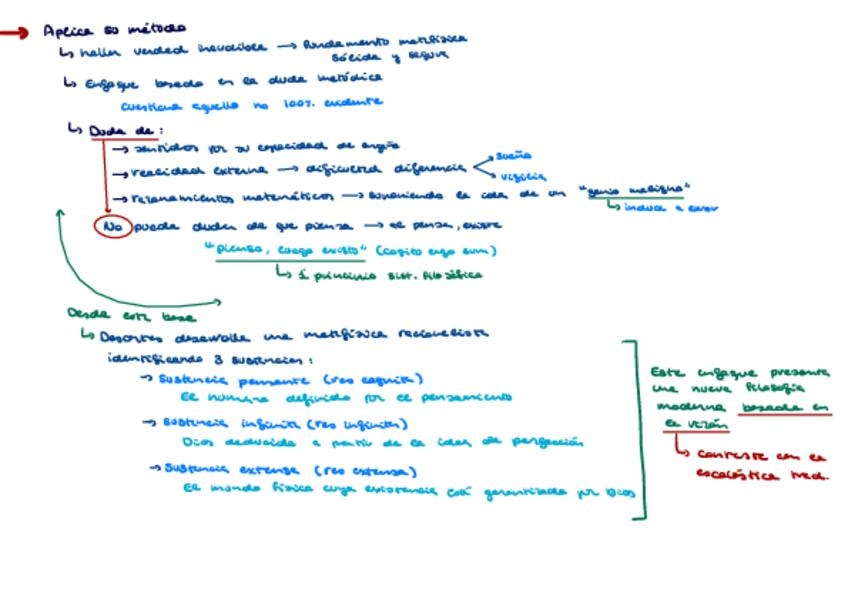 → Aplica su método
↳ hallar verdad inaudible → fundamento metafísica
sólida y segura
↳ Enfoque basado en la duda metódica
cuestiona aquello no 100% evidente
↳ Duda de:
→ sentidos por su capacidad de engaño
→ realidad externa → dificultad diferencia
sueño
vigilia
→ razonamientos matemáticos → suponiendo la idea de un "genio maligno"
↳ induce a error
No puede dudar de que piensa → al pensar, existe
"pienso, luego existo" (cogito ergo sum)
↳ 1 principio sist. filosófica
Desde esta base
↳ Descartes desarrolla una metafísica racionalista
identificando 3 sustancias:
→ Sustancia pensante (res cognita)
El humano definido por el pensamiento
→ Sustancia infinita (res infinita)
Dios deducida a partir de la idea de perfección
→ Sustancia extensa (res extensa)
El mundo física cuya existencia está garantizada por Dios
Este enfoque presenta
una nueva filosofía
moderna basada en
la razón
↳ contraste con la
escolástica med.